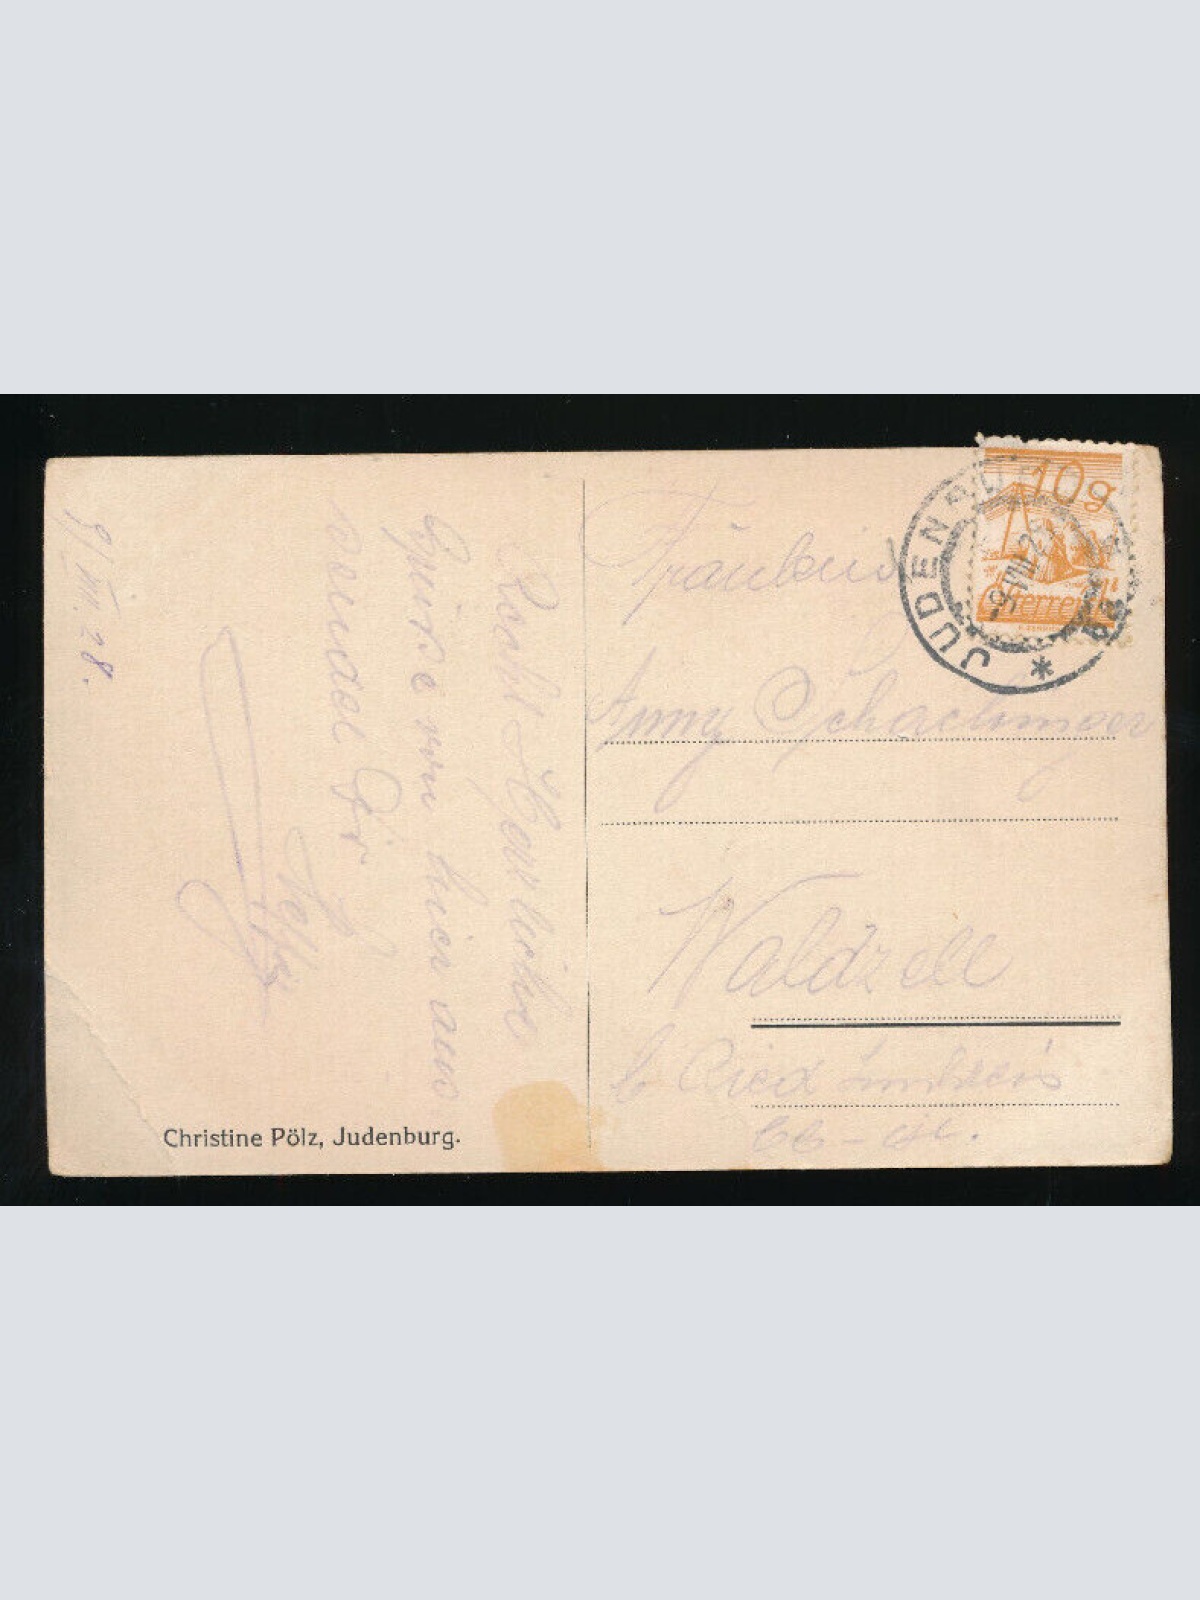 9/VIII.28.
Recht Herzliche
Grüsse von hier aus
sendet Dir
Peppi
Christine Pölz, Judenburg.
Fräulein
Anny Schachinger
Waldzell
b Ried Innkreis
Ob-Öst.
10g
Österreich
JUDENBURG
-9.VIII.28